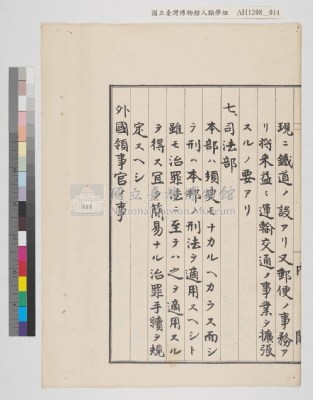 國立臺灣博物館人類學組 AH1208_014
現ニ鐵道ノ設アリ又郵便ノ事務ア
リ将来益〻運輸交通ノ事業ヲ擴張
スルノ要アリ
七、司法部
本部ハ須臾モナカルヘカラス而シ
テ刑ハ本邦ノ刑法ヲ適用スヘシト
雖モ治罪法ニ至テハ之ヲ適用スル
ヲ得ス宜ク簡易ナル治罪手續ヲ規
定スヘシ
外國領事官ノ事
內閣